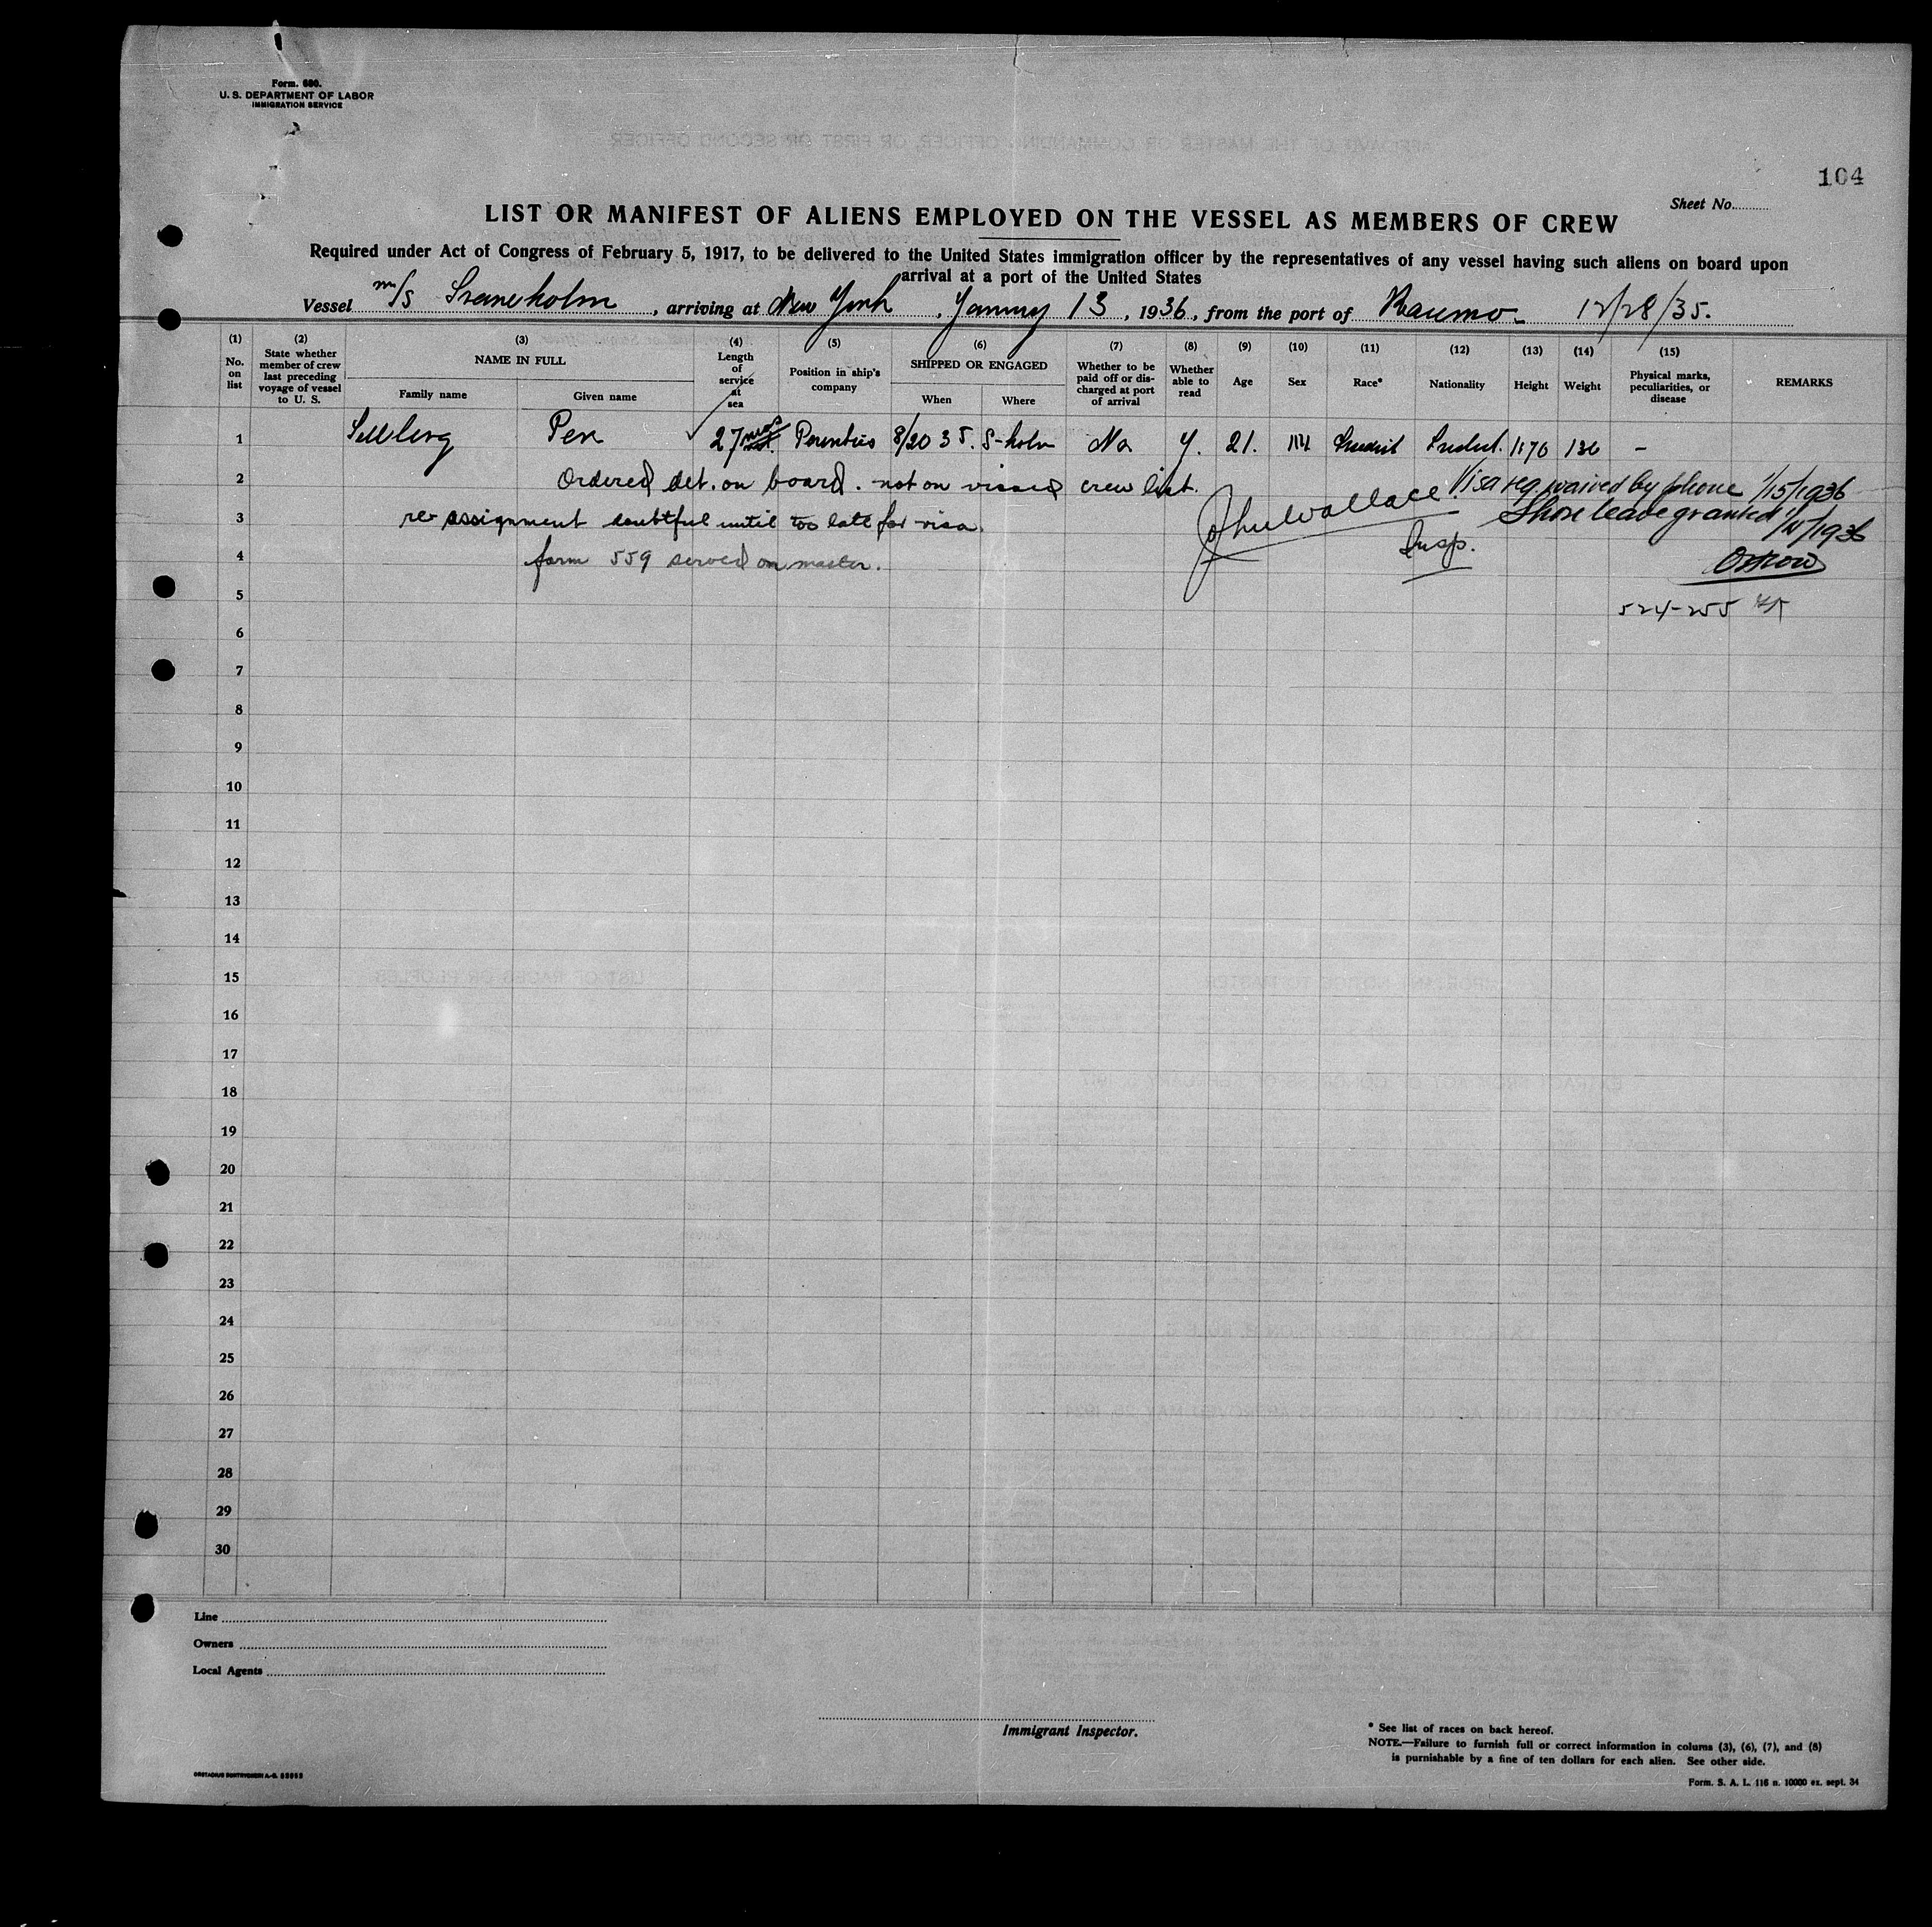 Form. 680.
U. S. DEPARTMENT OF LABOR
IMMIGRATION SERVICE
104
Sheet No.
LIST OR MANIFEST OF ALIENS EMPLOYED ON THE VESSEL AS MEMBERS OF CREW
Required under Act of Congress of February 5, 1917, to be delivered to the United States immigration officer by the representatives of any vessel having such aliens on board upon
arrival at a port of the United States
Vessel m/s , arriving at New York , January 13 , 1936 , from the port of Raumo 12/28/35.
(1) No. on list
(2) State whether member of crew last preceding voyage of vessel to U. S.
(3) NAME IN FULL
Family name
Given name
(4) Length of service at sea
(5) Position in ship's company
(6) SHIPPED OR ENGAGED
When
Where
(7) Whether to be paid off or discharged at port of arrival
(8) Whether able to read
(9) Age
(10) Sex
(11) Race*
(12) Nationality
(13) Height
(14) Weight
(15) Physical marks, peculiarities, or disease
REMARKS
1 27 mos 8/20 35. S-holm No Y. 21. M 1:76 136 –
2 Ordered det. on board. not on visaed crew list. Visa req. waived by phone 1/15/1936
3 re-assignment doubtful until too late for visa. John Wallace Shore leave granted
4 form 559 served on master. Insp.
5 524-255
6
7
8
9
10
11
12
13
14
15
16
17
18
19
20
21
22
23
24
25
26
27
28
29
30
Line
Owners
Local Agents
Immigrant Inspector.
* See list of races on back hereof.
NOTE.—Failure to furnish full or correct information in colums (3), (6), (7), and (8)
is punishable by a fine of ten dollars for each alien. See other side.
Form. S. A. L. 116 n. 10000 ex. sept. 34